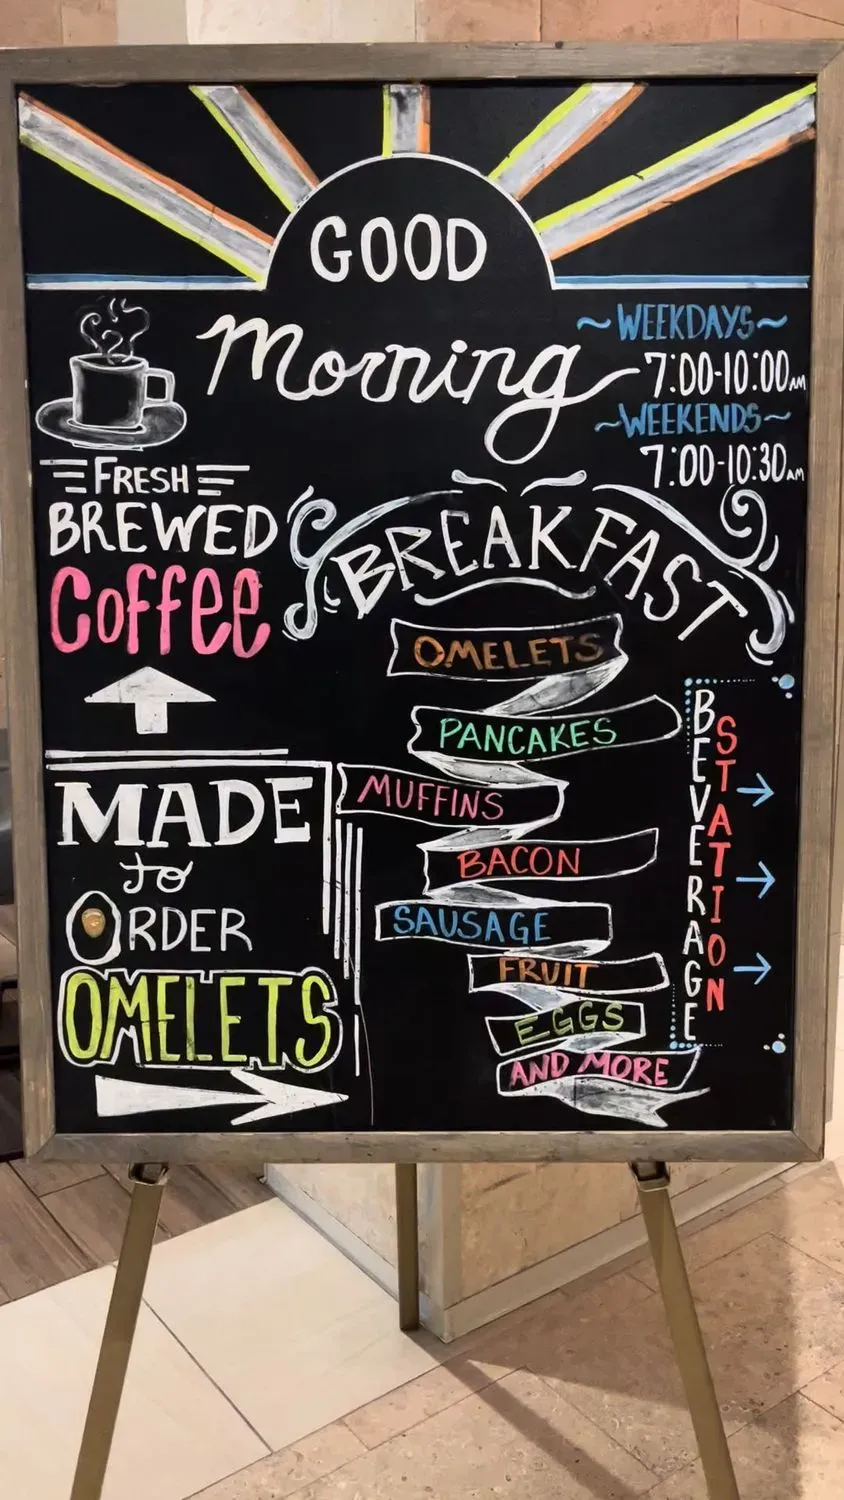 GOOD
Morning
~WEEKDAYS~
7:00-10:00AM
~WEEKENDS~
7:00-10:30AM
FRESH
BREWED
Coffee
BREAKFAST
OMELETS
PANCAKES
MUFFINS
BACON
SAUSAGE
FRUIT
EGGS
AND MORE
BEVERAGE
STATION
MADE
to
ORDER
OMELETS